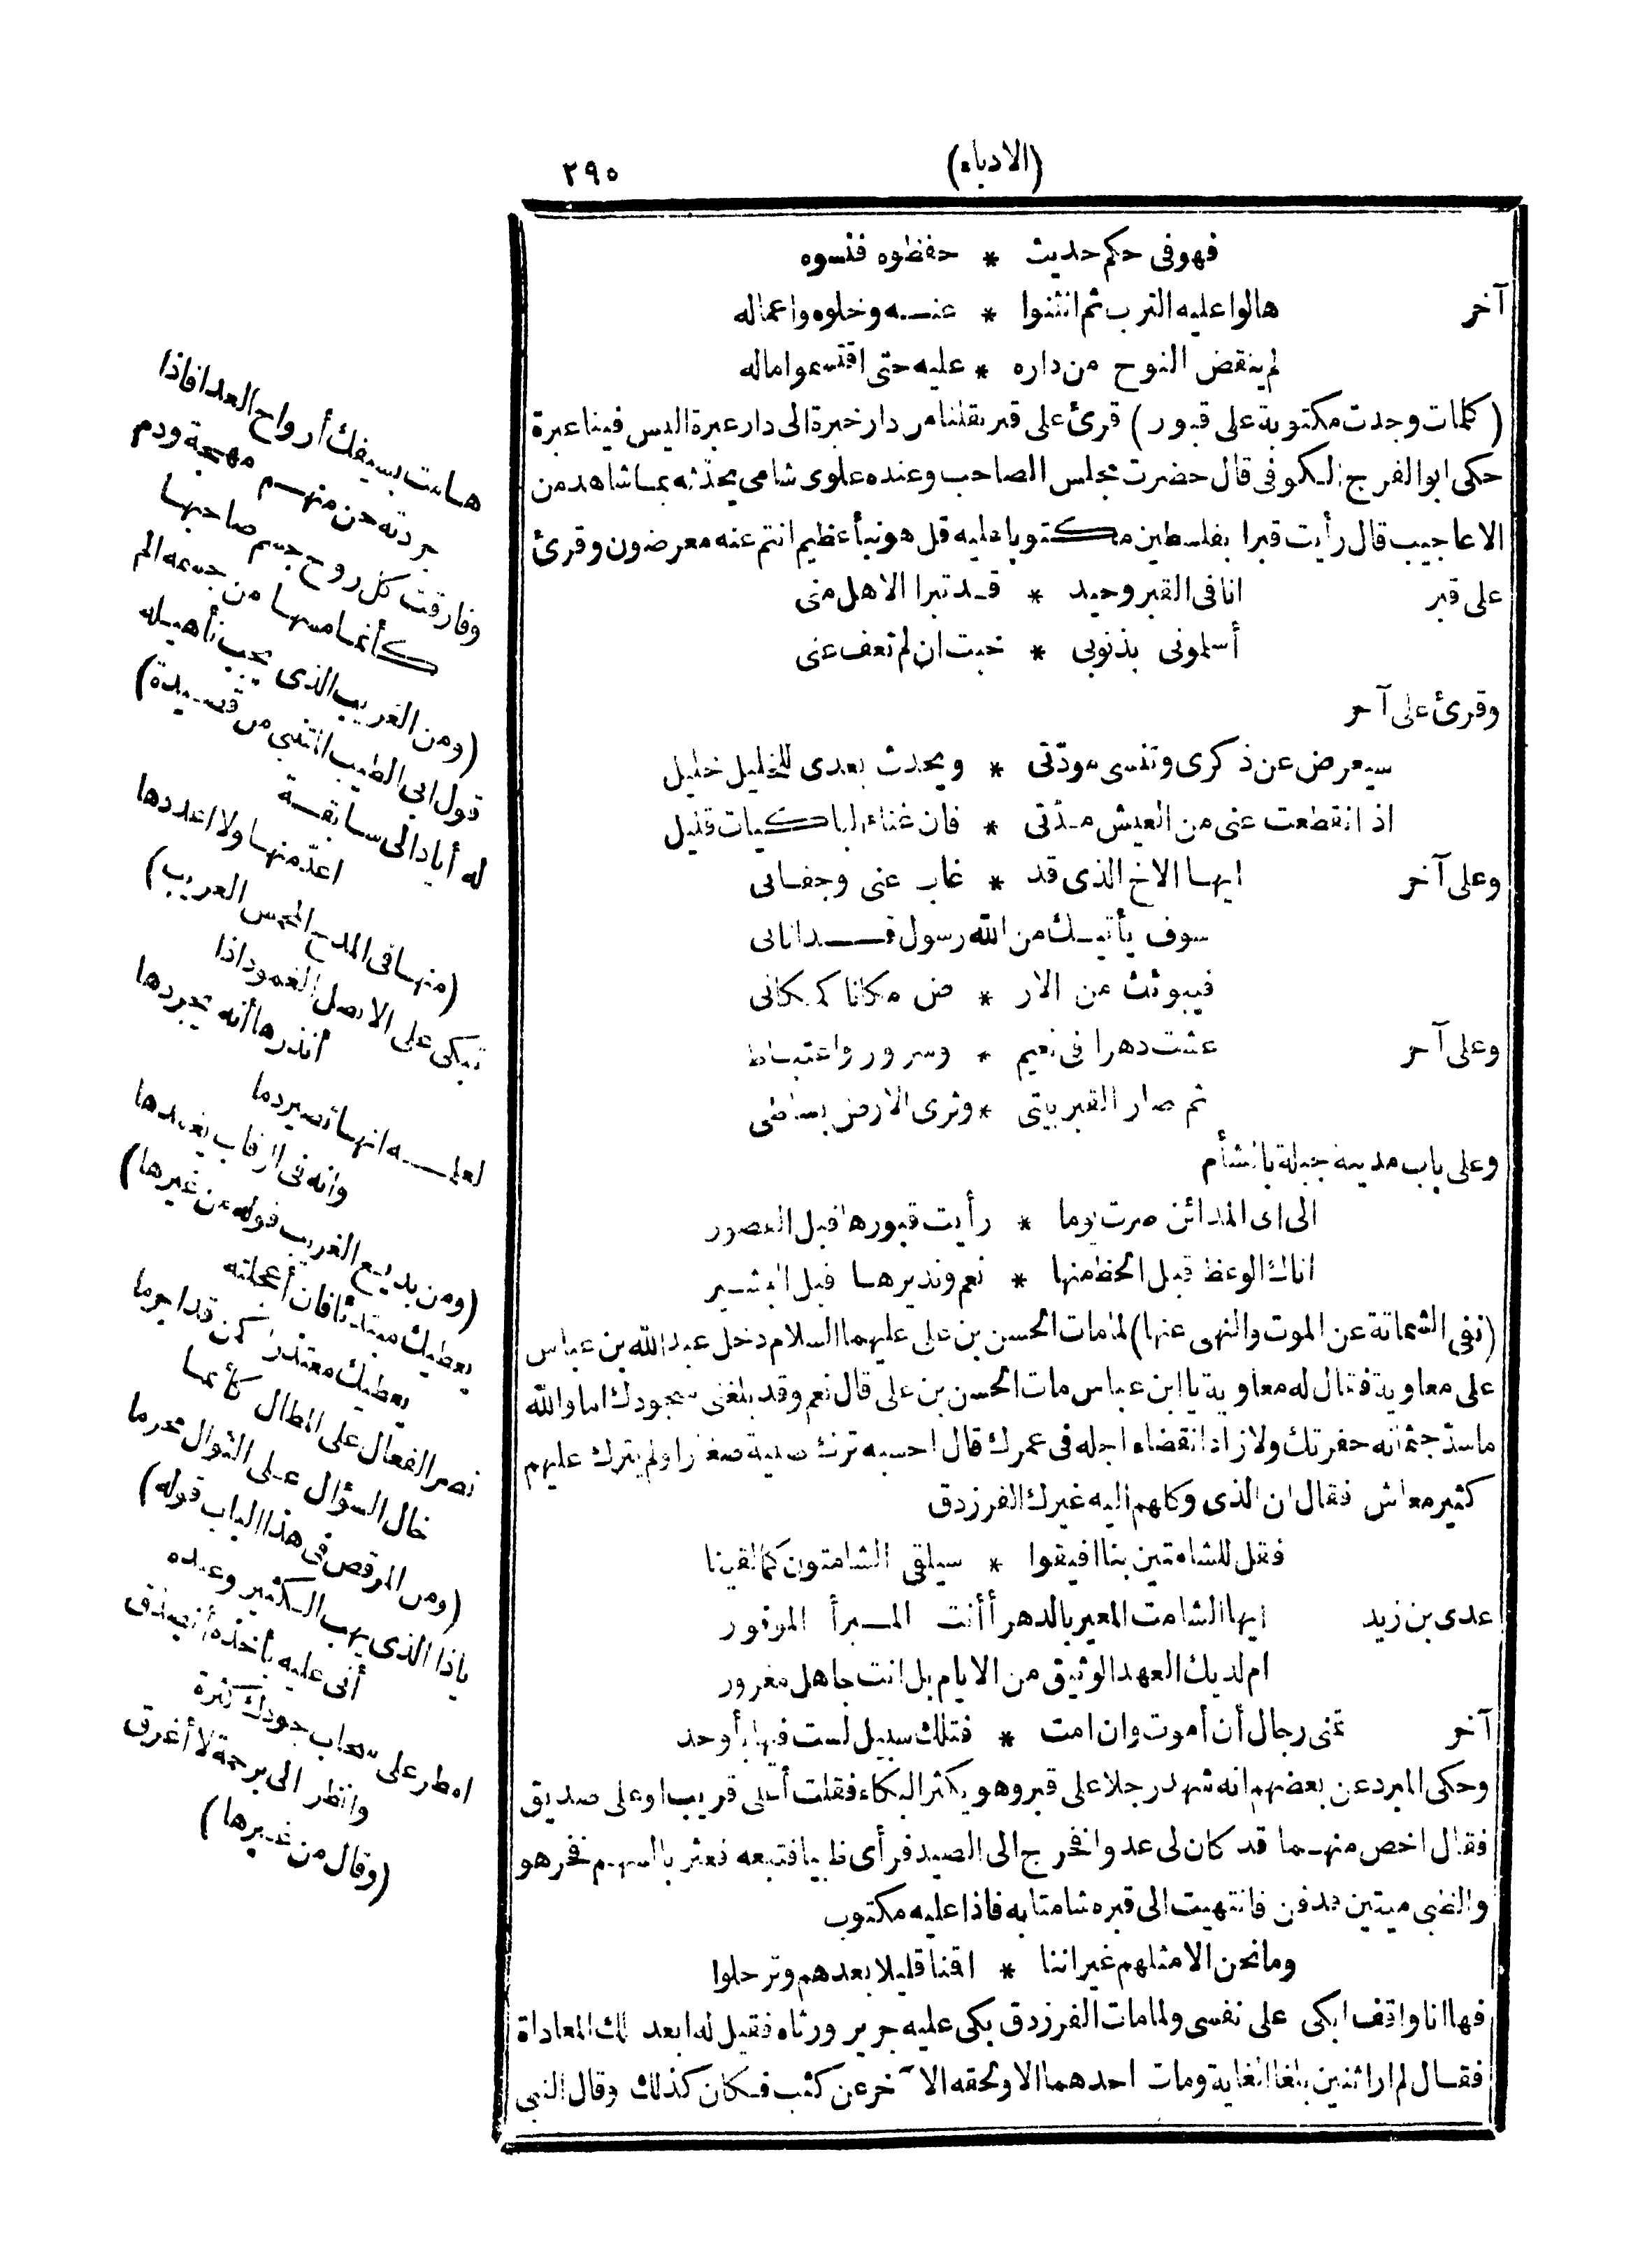 (الادباء)
٢٩٥
فهو فى حكم حديث * حفظوه فنسوه
آخر هالوا عليه الترب ثم انثنوا * عنه وخلوه واعماله
لم ينقض النوح من داره * عليه حتى اقتسموا ماله
(كلمات وجدت مكتوبة على قبور) قرئ على قبر نقلنا من دار خبرة الى دار عبرة اليس فينا عبرة
حكى ابو الفرج الكوفى قال حضرت مجلس الصاحب وعنده علوى شامى يحدّثه بما شاهد من
الاعاجيب قال رأيت قبرا بفلسطين مكتوبا عليه قل هو نبأ عظيم انتم عنه معرضون وقرئ
على قبر انا فى القبر وحيد * قد تبرا الاهل منى
أسلمونى بذنوبى * خبت ان لم تعف عنى
وقرئ على آخر
سيعرض عن ذكرى وتنسى مودّتى * ويحدث بعدى للخليل خليل
اذ انقطعت عنى من العيش مدّتى * فان غناء الباكيات قليل
وعلى آخر ايها الاخ الذى قد * غاب عنى وجفانى
سوف يأتيك من الله رسول قد اتانى
فيبوئك من الار * ض مكانا كمكانى
وعلى آخر عشت دهرا فى نعيم * وسرور واغتباط
ثم صار القبر بيتى * وثرى الارض بساطى
وعلى باب مدينة جبلة بالشأم
الى اى المدائن صرت يوما * رأيت قبورها قبل القصور
اتاك الوعظ قبل الحظ منها * نعم ونذيرها قبل البشير
(نفى الشماتة عن الموت والنهى عنها) لما مات الحسن بن على عليهما السلام دخل عبد الله بن عباس
على معاوية فقال له معاوية يا ابن عباس مات الحسن بن على قال نعم وقد بلغنى سجودك اما والله
ماسدّ جثمانه حفرتك ولا زاد انقضاء اجله فى عمرك قال احسبه ترك صبية صغارا ولم يترك عليهم
كثير معاش فقال ان الذى وكلهم اليه غيرك الفرزدق
فقل للشامتين بنا افيقوا * سيلقى الشامتون كما لقينا
عدى بن زيد ايها الشامت المعير بالدهر أأنت المبرأ الموفور
ام لديك العهد الوثيق من الايام بل انت جاهل مغرور
آخر تمنى رجال أن أموت وان امت * فتلك سبيل لست فيها بأوحد
وحكى المبرد عن بعضهم انه شهد رجلا على قبر وهو يكثر البكاء فقلت أعلى قريب او على صديق
فقال اخص منهما قد كان لى عدوا فخرج الى الصيد فرأى ظبيا فتبعه فعثر بالسهم فخر هو
والظبى ميتين فدفن فانتهيت الى قبره شامتا به فاذا عليه مكتوب
وما نحن الا مثلهم غير اننا * اقمنا قليلا بعدهم وترحلوا
فها انا واقف ابكى على نفسى ولما مات الفرزدق بكى عليه جرير ورثاه فقيل له ابعد تلك المعاداة
فقال لم ار اثنين بلغا الغاية ومات احدهما الا ولحقه الآخر عن كثب فكان كذلك وقال النبى
هامت بسيفك أرواح العدا فاذا
جردته حن منهم مهجة ودم
وفارقت كل روح جسم صاحبها
كأنما مسها من جسمه الم
(ومن الغريب الذى يجب تأهيله
قول ابى الطيب المتنبى من قصيدة)
له أياد الى سابقة
اعدّ منها ولا اعددها
(منها فى المدح المحسن الغريب)
تبكى على الانصل الغمود اذا
أنذرها أنه يجردها
لعلمه انها تصير دما
وانه فى الرقاب يغمدها
(ومن بديع الغريب قوله من غيرها)
يعطيك مبتدئا فان أعجلته
يعطيك معتذرا كمن قد اجرما
نصر الفعال على المطال كأنما
خال السؤال على النوال محرما
(ومن المرقص فى هذا الباب قوله)
ياذا الذى يهب الكثير وعنده
أنى عليه بأخذه أتصدّق
امطر على سحاب جودك ثرة
وانظر الى برحمة لا أغرق
(وقال من غيرها)